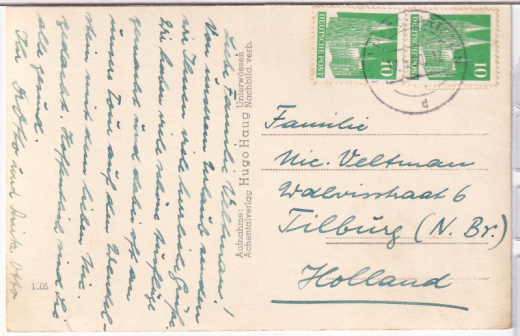 Liebe Familie Veltman!
Von unserem Urlaub senden
wir Ihnen viele herzliche Grüße.
Wir haben viele schöne Ausflüge
gemacht und dabei oft an
unsere Tour auf den Wendel-
stein mit dem lieben Nic.
gedacht. Hoffentlich sind Sie
alle gesund.
Ihr und Otto
1105
Aufnahme: Hugo Haug Unterwössen
Achentalverlag Nachbild. verb.
DEUTSCHE POST
10
DEUTSCHE POST
10
Familie
Nic. Veltman
Walvisstraat 6
Tilburg (N. Br.)
Holland